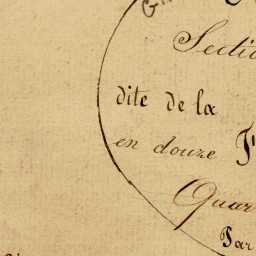 Secti
dite de la
en douze F
Quar
Par